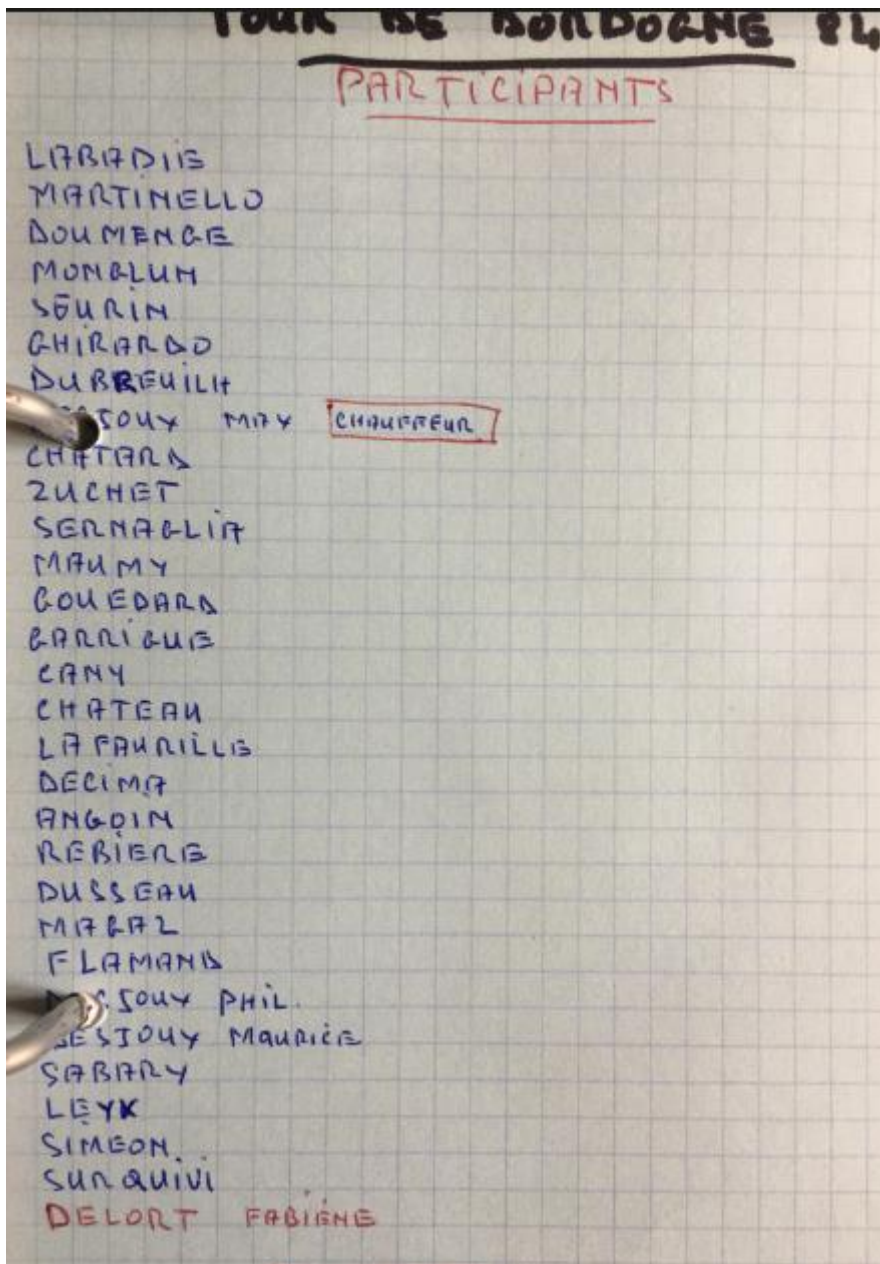 TOUR DE DORDOGNE 84
PARTICIPANTS
LABADIE
MARTINELLO
DOUMENGE
MONGLUN
SEURIN
GHIRARDO
DUBREUILH
MAX CHAUFFEUR
CHATARD
ZUCHET
SERNAGLIA
MAUMY
GOUEDARD
GARRIGUE
CANY
CHATEAU
LAFAURILLE
DECIMA
ANGOIN
REBIERE
DUSSEAU
MAGAL
FLAMAND
PHIL.
DESJOUX MAURICE
SABARY
LEYX
SIMEON
SURQUIVI
DELORT FABIENE